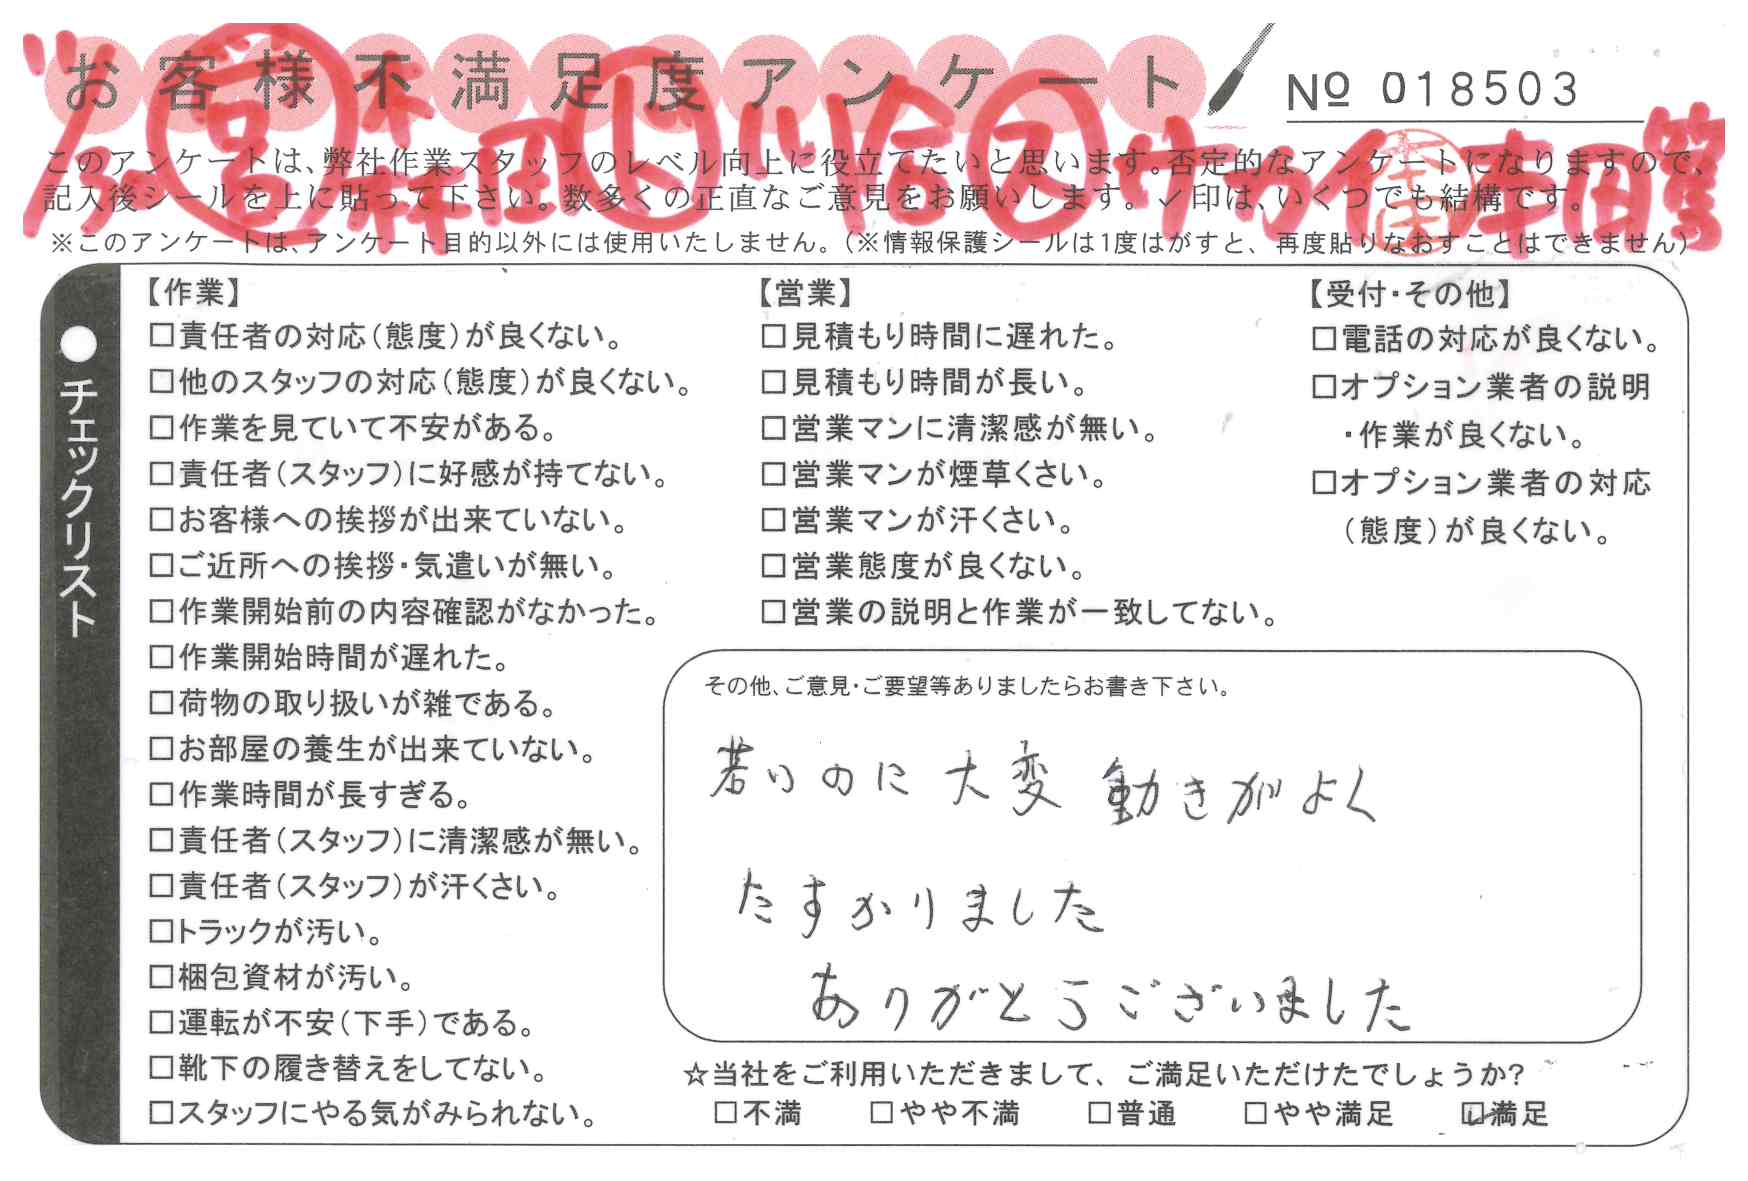 お客様不満足度アンケート
№ 018503
このアンケートは、弊社作業スタッフのレベル向上に役立てたいと思います。否定的なアンケートになりますので、
記入後シールを上に貼って下さい。数多くの正直なご意見をお願いします。✓印は、いくつでも結構です。
※このアンケートは、アンケート目的以外には使用いたしません。(※情報保護シールは1度はがすと、再度貼りなおすことはできません)
●チェックリスト
【作業】
□責任者の対応(態度)が良くない。
□他のスタッフの対応(態度)が良くない。
□作業を見ていて不安がある。
□責任者(スタッフ)に好感が持てない。
□お客様への挨拶が出来ていない。
□ご近所への挨拶・気遣いが無い。
□作業開始前の内容確認がなかった。
□作業開始時間が遅れた。
□荷物の取り扱いが雑である。
□お部屋の養生が出来ていない。
□作業時間が長すぎる。
□責任者(スタッフ)に清潔感が無い。
□責任者(スタッフ)が汗くさい。
□トラックが汚い。
□梱包資材が汚い。
□運転が不安(下手)である。
□靴下の履き替えをしてない。
□スタッフにやる気がみられない。
【営業】
□見積もり時間に遅れた。
□見積もり時間が長い。
□営業マンに清潔感が無い。
□営業マンが煙草くさい。
□営業マンが汗くさい。
□営業態度が良くない。
□営業の説明と作業が一致してない。
【受付・その他】
□電話の対応が良くない。
□オプション業者の説明
・作業が良くない。
□オプション業者の対応
(態度)が良くない。
その他、ご意見・ご要望等ありましたらお書き下さい。
若いのに大変動きがよく
たすかりました
ありがとうございました
☆当社をご利用いただきまして、ご満足いただけたでしょうか?
□不満 □やや不満 □普通 □やや満足 ☑満足